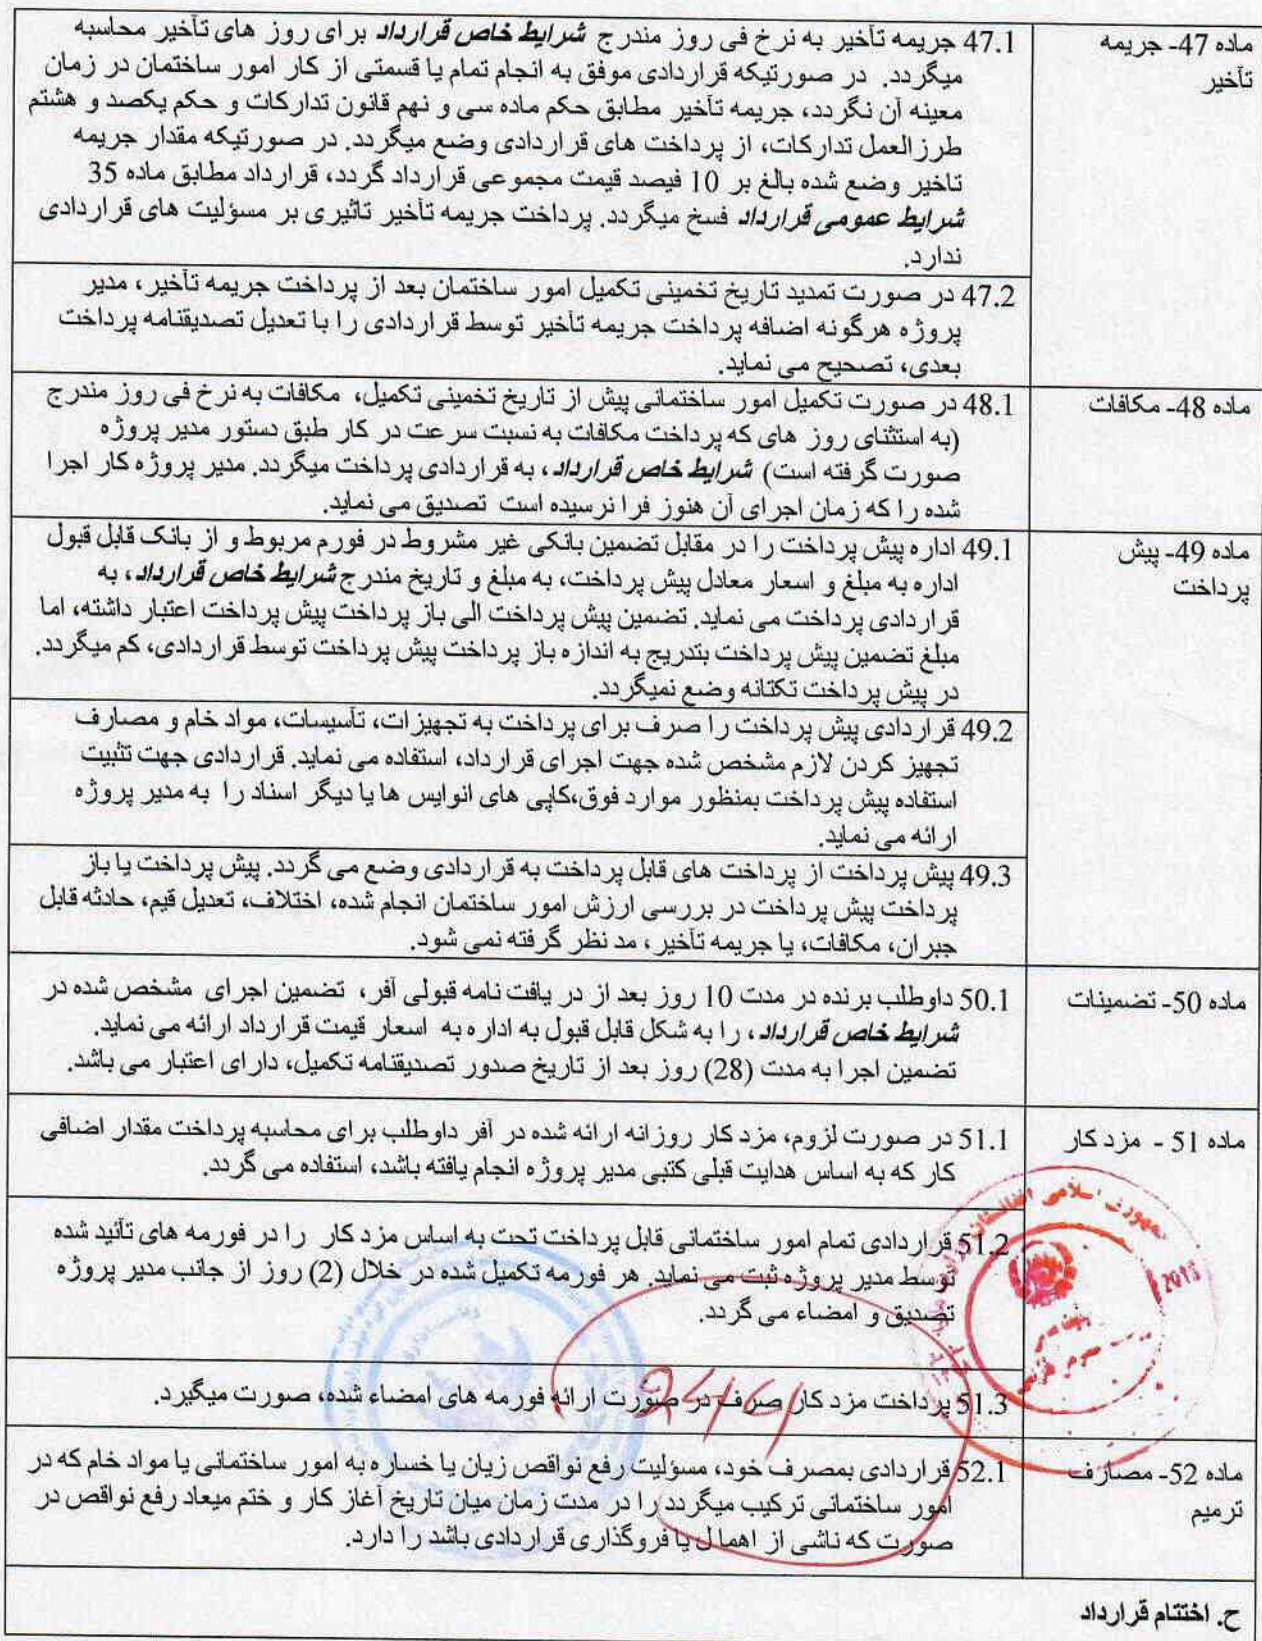 ماده 47- جریمه
تأخیر
47.1 جریمه تأخیر به نرخ فی روز مندرج شرایط خاص قرارداد برای روز های تأخیر محاسبه
میگردد. در صورتیکه قراردادی موفق به انجام تمام یا قسمتی از کار امور ساختمان در زمان
معینه آن نگردد، جریمه تأخیر مطابق حکم ماده سی و نهم قانون تدارکات و حکم یکصد و هشتم
طرزالعمل تدارکات، از پرداخت های قراردادی وضع میگردد. در صورتیکه مقدار جریمه
تاخیر وضع شده بالغ بر 10 فیصد قیمت مجموعی قرارداد گردد، قرارداد مطابق ماده 35
شرایط عمومی قرارداد فسخ میگردد. پرداخت جریمه تأخیر تاثیری بر مسؤلیت های قراردادی
ندارد.
47.2 در صورت تمدید تاریخ تخمینی تکمیل امور ساختمان بعد از پرداخت جریمه تأخیر، مدیر
پروژه هرگونه اضافه پرداخت جریمه تأخیر توسط قراردادی را با تعدیل تصدیقنامه پرداخت
بعدی، تصحیح می نماید.
ماده 48- مکافات
48.1 در صورت تکمیل امور ساختمانی پیش از تاریخ تخمینی تکمیل، مکافات به نرخ فی روز مندرج
(به استثنای روز های که پرداخت مکافات به نسبت سرعت در کار طبق دستور مدیر پروژه
صورت گرفته است) شرایط خاص قرارداد، به قراردادی پرداخت میگردد. مدیر پروژه کار اجرا
شده را که زمان اجرای آن هنوز فرا نرسیده است تصدیق می نماید.
ماده 49- پیش
پرداخت
49.1 اداره پیش پرداخت را در مقابل تضمین بانکی غیر مشروط در فورم مربوط و از بانک قابل قبول
اداره به مبلغ و اسعار معادل پیش پرداخت، به مبلغ و تاریخ مندرج شرایط خاص قرارداد، به
قراردادی پرداخت می نماید. تضمین پیش پرداخت الی باز پرداخت پیش پرداخت اعتبار داشته، اما
مبلغ تضمین پیش پرداخت بتدریج به اندازه باز پرداخت پیش پرداخت توسط قراردادی، کم میگردد.
در پیش پرداخت تکتانه وضع نمیگردد.
49.2 قراردادی پیش پرداخت را صرف برای پرداخت به تجهیزات، تأسیسات، مواد خام و مصارف
تجهیز کردن لازم مشخص شده جهت اجرای قرارداد، استفاده می نماید. قراردادی جهت تثبیت
استفاده پیش پرداخت بمنظور موارد فوق،کاپی های انوایس ها یا دیگر اسناد را به مدیر پروژه
ارائه می نماید.
49.3 پیش پرداخت از پرداخت های قابل پرداخت به قراردادی وضع می گردد. پیش پرداخت یا باز
پرداخت پیش پرداخت در بررسی ارزش امور ساختمان انجام شده، اختلاف، تعدیل قیم، حادثه قابل
جبران، مکافات، یا جریمه تأخیر، مد نظر گرفته نمی شود.
ماده 50- تضمینات
50.1 داوطلب برنده در مدت 10 روز بعد از در یافت نامه قبولی آفر، تضمین اجرای مشخص شده در
شرایط خاص قرارداد، را به شکل قابل قبول به اداره به اسعار قیمت قرارداد ارائه می نماید.
تضمین اجرا به مدت (28) روز بعد از تاریخ صدور تصدیقنامه تکمیل، دارای اعتبار می باشد.
ماده 51 - مزد کار
51.1 در صورت لزوم، مزد کار روزانه ارائه شده در آفر داوطلب برای محاسبه پرداخت مقدار اضافی
کار که به اساس هدایت قبلی کتبی مدیر پروژه انجام یافته باشد، استفاده می گردد.
51.2 قراردادی تمام امور ساختمانی قابل پرداخت تحت به اساس مزد کار را در فورمه های تأئید شده
توسط مدیر پروژه ثبت می نماید. هر فورمه تکمیل شده در خلال (2) روز از جانب مدیر پروژه
تصدیق و امضاء می گردد.
51.3 پرداخت مزد کار صرف در صورت ارائه فورمه های امضاء شده، صورت میگیرد.
ماده 52- مصارف
ترمیم
52.1 قراردادی بمصرف خود، مسؤلیت رفع نواقص زیان یا خساره به امور ساختمانی یا مواد خام که در
امور ساختمانی ترکیب میگردد را در مدت زمان میان تاریخ آغاز کار و ختم میعاد رفع نواقص در
صورت که ناشی از اهمال یا فروگذاری قراردادی باشد را دارد.
ح. اختتام قرارداد